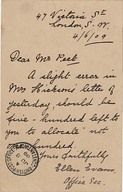 47 Victoria St
London, S.W.
4/6/09
Dear Mr Peet
A slight error in
Mrs Hickson's letter of
yesterday, should be
five-hundred left to
you to allocate - not
hundred.
Yours faithfully
Ellen Evans.
Office Sec.